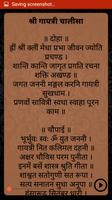 Saving screenshot...
श्री गायत्री चालीसा
॥ दोहा ॥
ह्रीं श्रीं क्लीं मेधा प्रभा जीवन ज्योति
प्रचण्ड ॥
शान्ति कान्ति जागृत प्रगति रचना
शक्ति अखण्ड ॥
जगत जननी मङ्गल करनि गायत्री
सुखधाम ।
प्रणवों सावित्री स्वधा स्वाहा पूरन
काम ॥
भूर्भुवः स्वः ॐ युत जननी ।
गायत्री नित कलिमल दहनी ॥
अक्षर चौविस परम पुनीता ।
इनमें बसें शास्त्र श्रुति गीता ॥
शाश्वत सतोगुणी सत रूपा ।
सत्य सनातन सुधा अनूपा ॥